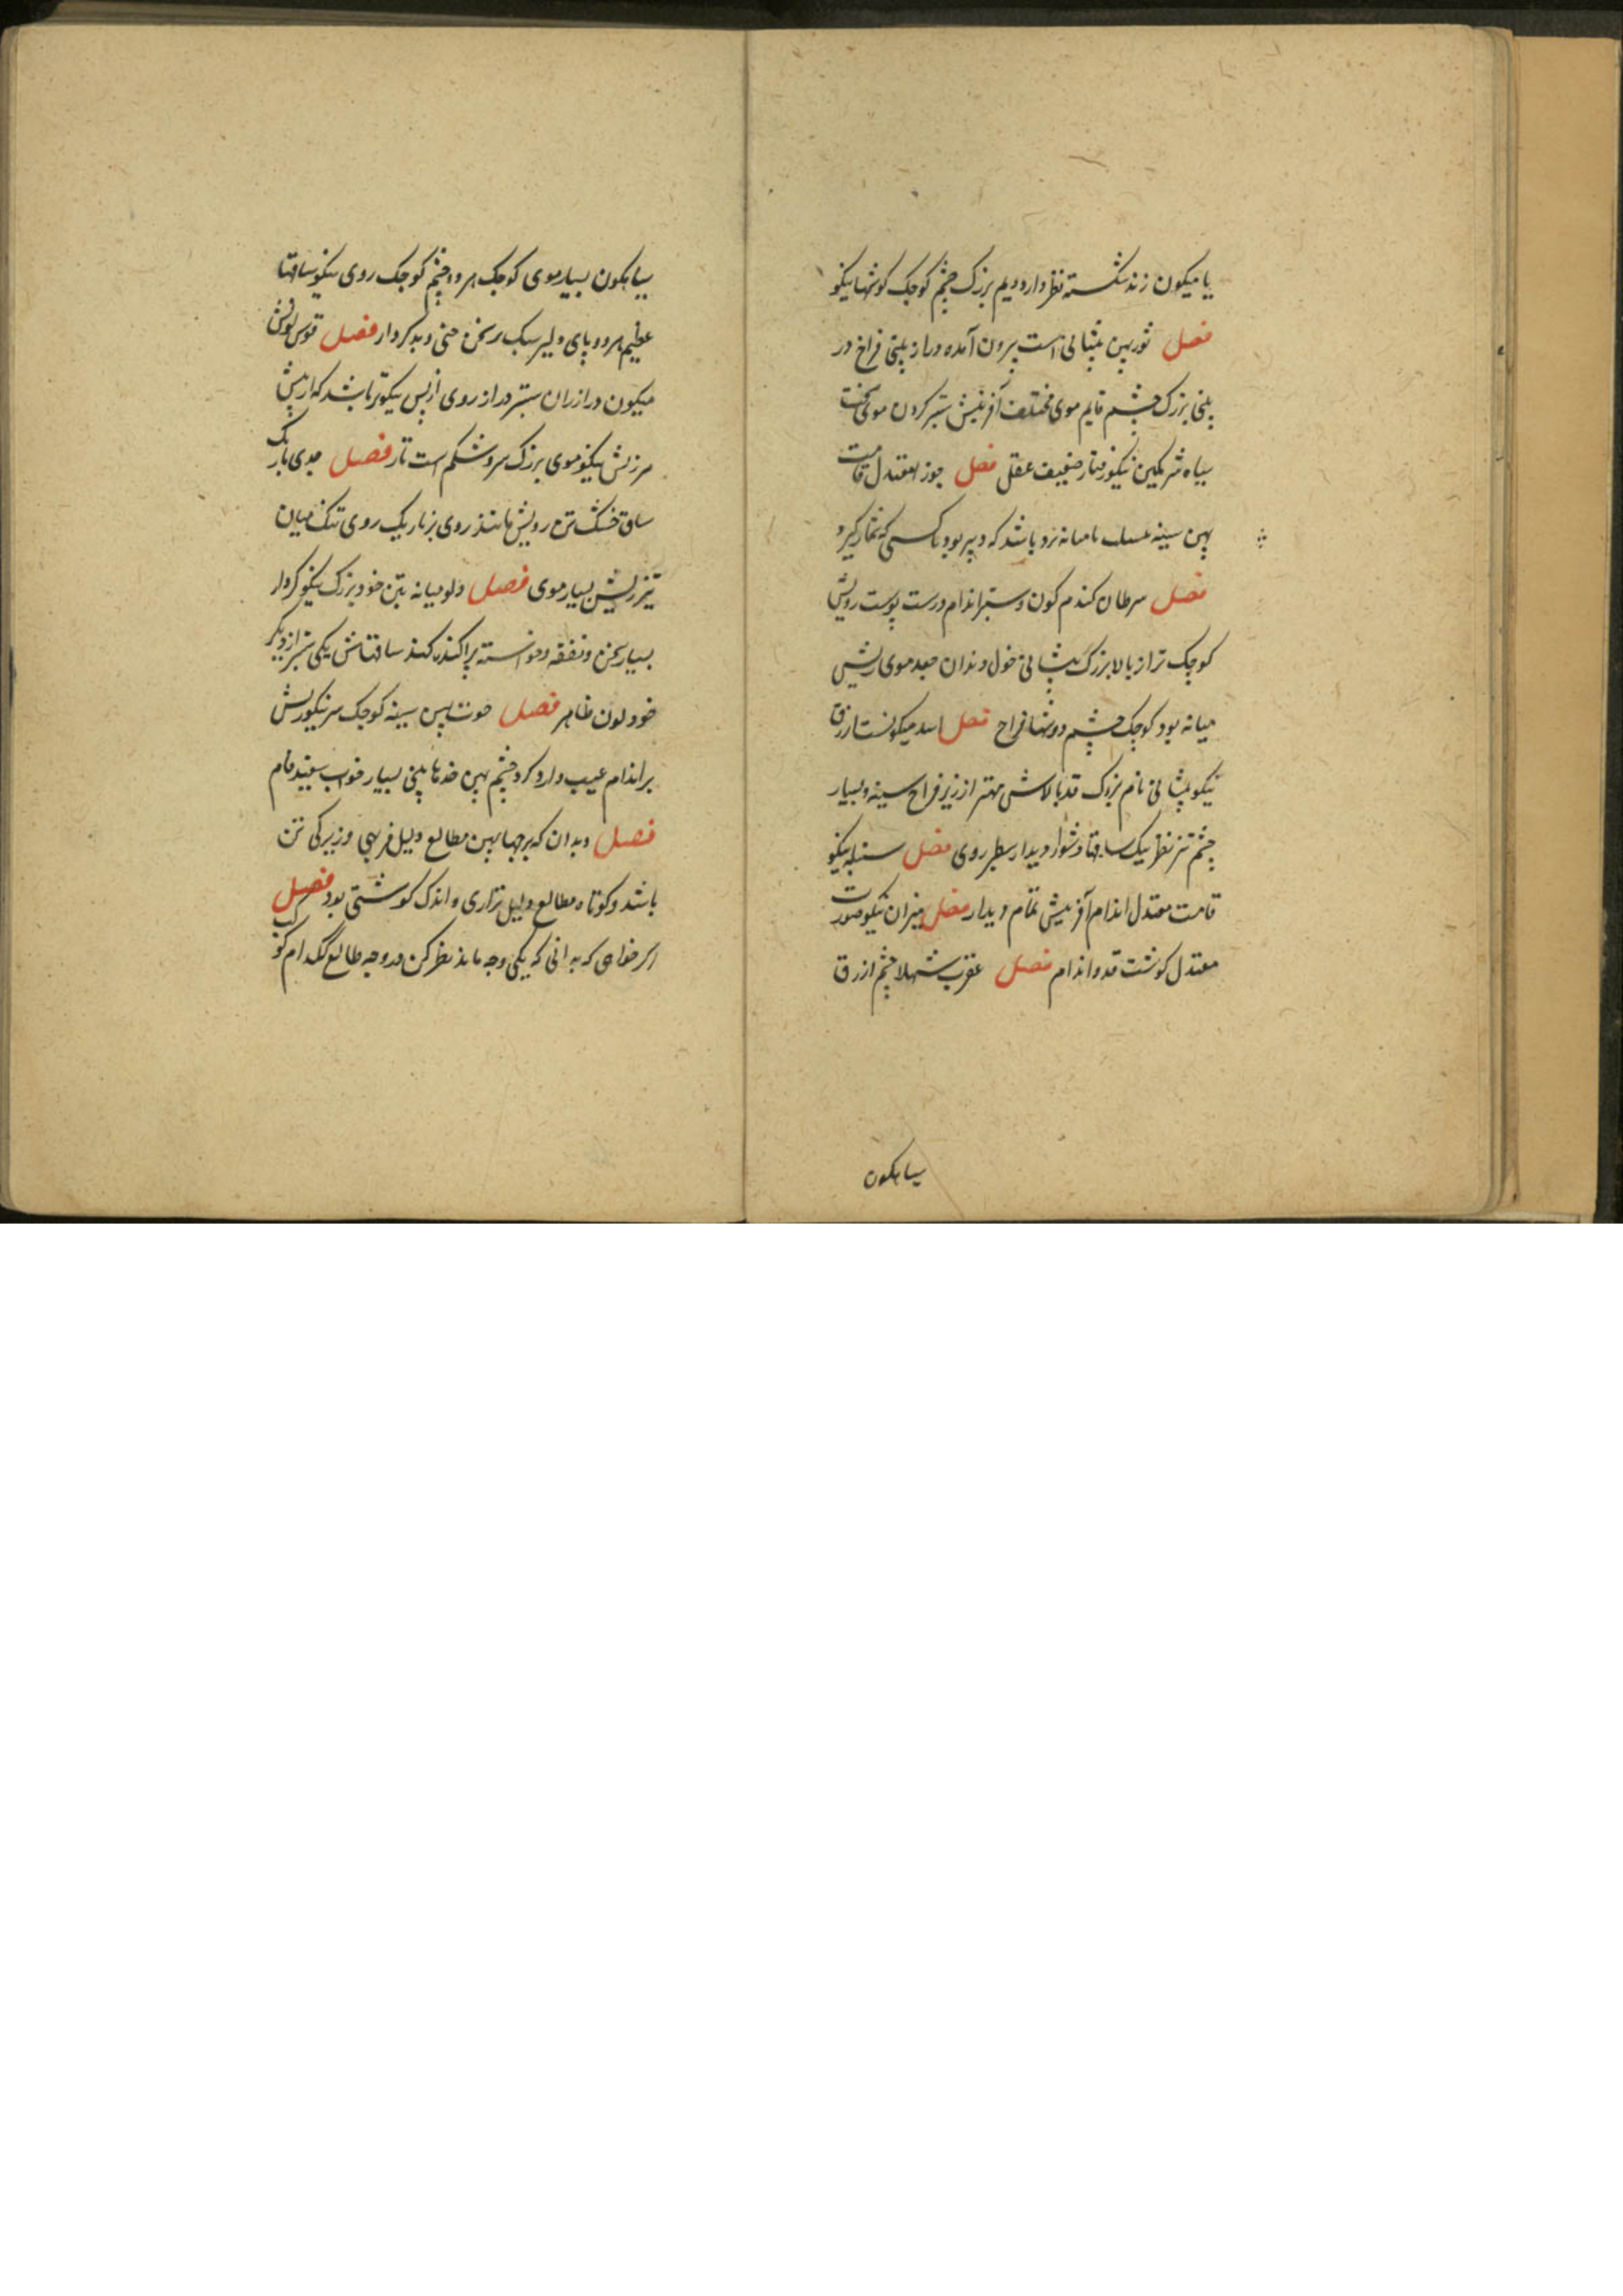 یا میکون زند شکسته نظر دارد دیم بزرک چشم کوچک کوشها نیکو
فصل ثور پهن پیشانی است برون آمده دراز بینی فراخ در
بینی بزرک چشم قایم موی مختلف آفرینش ستبر کردن موی سخت
سیاه شرمکین نیکو رفتار ضعیف عقل فصل جوزا معتدل قامت
پهن سینه میانه باشد که دبیر بود یا کسی که شمار کیرد
فصل سرطان کندم کون و ستبر اندام درست پوست رویش
کوچک تر از بالا بزرک پیشانی دندان جعد موی ریش
میانه بود کوچک چشم دوشها فراخ فصل اسد میکونست ازرق
نیکو پیشانی نام بزرک قد بالاش مهتر از زیر فراخ سینه و بسیار
چشم تیز نظر نیک ساقها دشوار دیدار سطبر روی فصل سنبله نیکو
قامت معتدل اندام آفرینش تمام دیدار فصل میزان نیکو صورت
معتدل کوشت قد و اندام فصل عقرب شهلا چشم ازرق
سیاهکون
سیاهکون بسیار موی کوچک هر دو چشم کوچک روی نیکو ساقها
عظیم هر دو پای دلیر سبک سخن و بد کردار فصل قوس لونش
میکون دراز ران ستبر دراز روی از پس نیکوتر باشد که از پیش
نیکو موی بزرک سر و شکم است فصل جدی باریک
ساق خشک تن رویش مانند روی بز باریک روی تنک میان
تیز ریش بسیار موی فصل دلو میانه بتن خود بزرک نیکو کردار
بسیار سخن و نفقه و خواسته پراکنده کند ساقهاش یکی ستبر از دیکر
خود لون ظاهر فصل حوت پهن سینه کوچک سر نیکو ریش
بر اندام عیب دارد چشم پهن بینی بسیار خواب سفید فام
فصل و بدان که برجها پهن مطالع دلیل فربهی و زیرکی تن
باشد و کوتاه مطالع دلیل نزاری و اندک کوشتی بود فصل
اکر خواهی که بدانی که بکی وجه ماند نظر کن در وجه طالع کدام کوکب